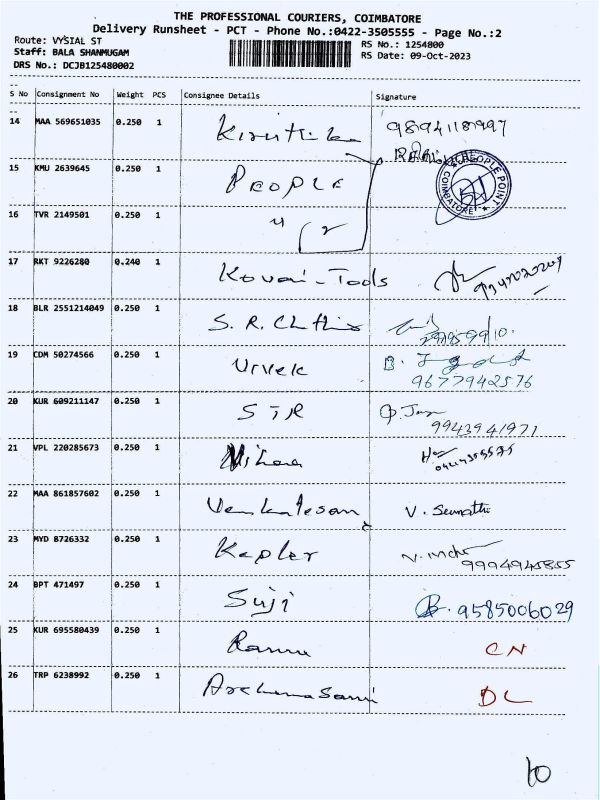 THE PROFESSIONAL COURIERS, COIMBATORE
Delivery Runsheet - PCT - Phone No.:0422-3505555 - Page No.:2
Route: VYSIAL ST RS No.: 1254800
Staff: BALA SHANMUGAM RS Date: 09-Oct-2023
DRS No.: DCJB125480002
S No Consignment No Weight PCS Consignee Details Signature
14 MAA 569651035 0.250 1 Kiruthika
15 KMU 2639645 0.250 1 PEOPLE PEOPLE POINT COIMBATORE
16 TVR 2149501 0.250 1 "
17 RKT 9226280 0.240 1 Kovai-Tools
18 BLR 2551214049 0.250 1 S. R.
19 CDM 50274566 0.250 1 B. 9677942576
20 KUR 609211147 0.250 1 STR 9943941971
21 VPL 220285673 0.250 1
22 MAA 861857602 0.250 1 Venkatesan V. Sumathi
23 MYD 8726332 0.250 1 Kepler 9994945855
24 BPT 471497 0.250 1 Suji 9585006029
25 KUR 695580439 0.250 1 CN
26 TRP 6238992 0.250 1 DL
10